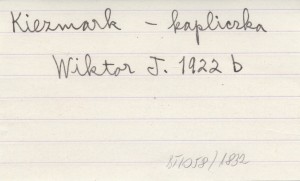 Kiezmark - kapliczka
Wiktor J. 1922 b
1058/1832